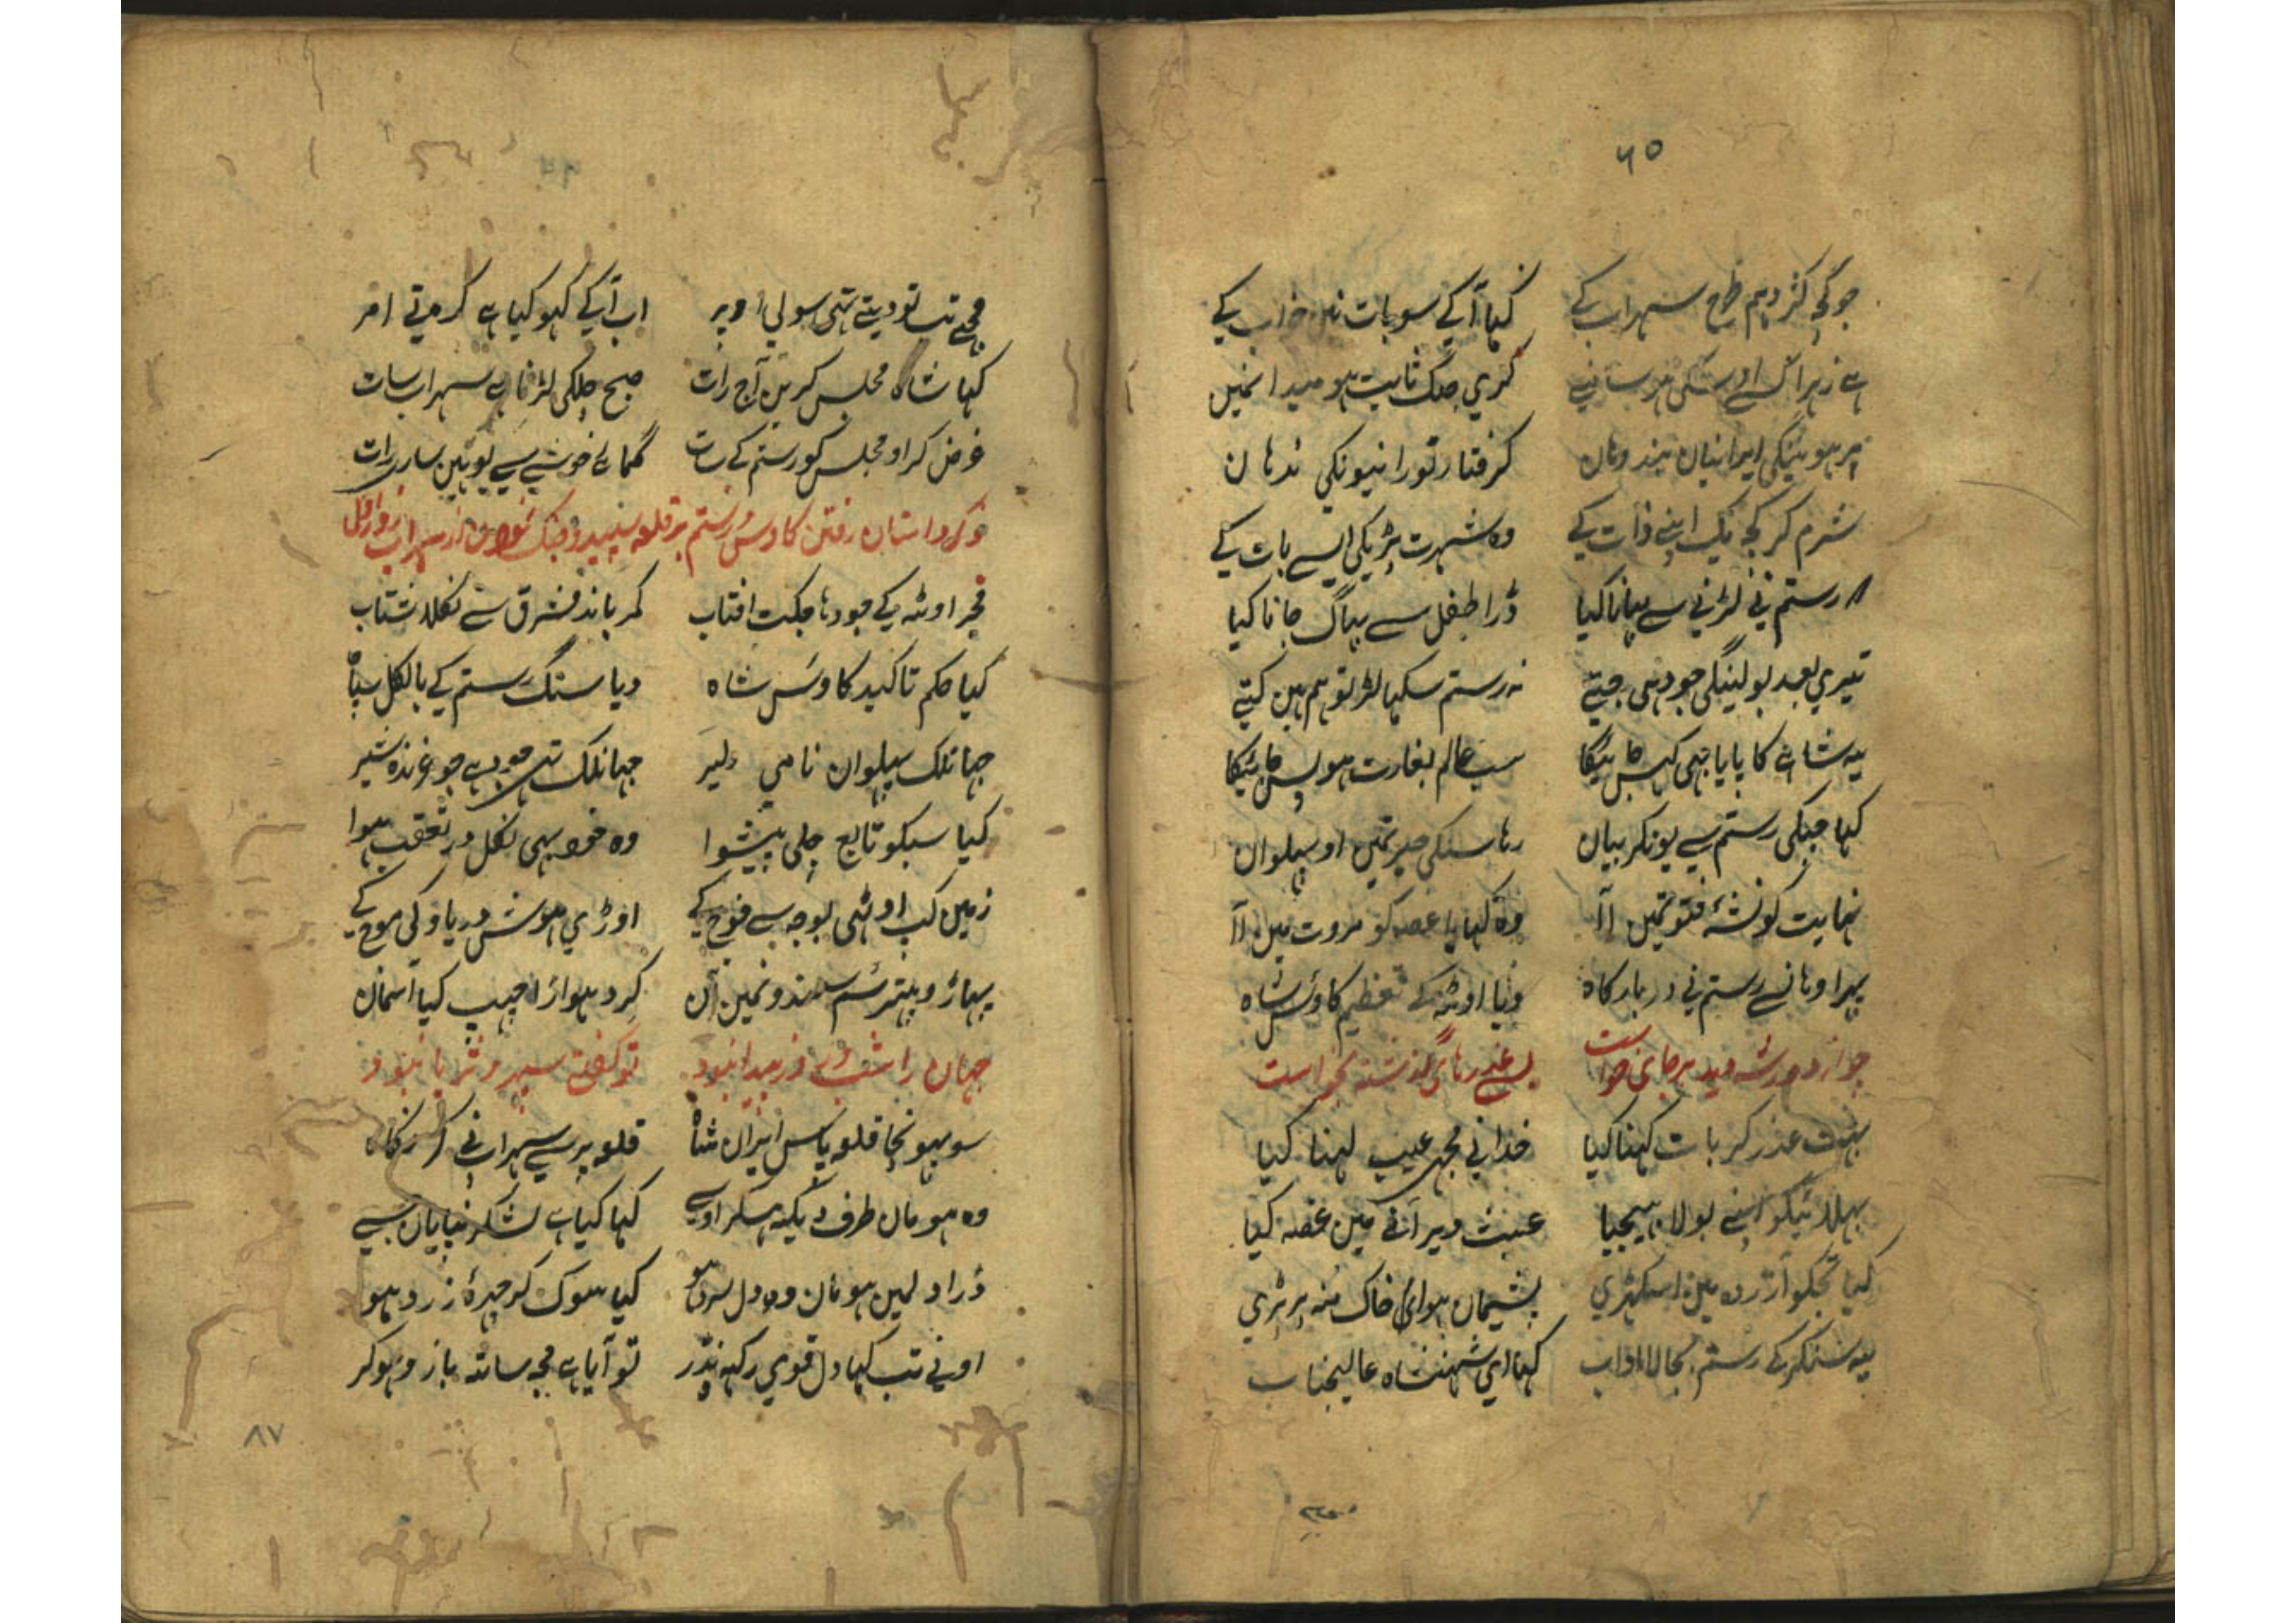 ۶۵
جو کچہ کثر دہم طرح سہراب کے کہا آ کے سو بات خراب کے
ہے زہر اس کری جنگ ثابت ہو میدانمیں
ہوئینگی ایرانیان ہندوہان گرفتار تورانیونکی ندہان
شرم کر کچہ یک اپنے ذات کے وہ شہرت پڑیکی ایسے بات کے
رستم نی لڑنی سے بہانا کیا ڈرا طفل سے بہاگ جانا کیا
تیری بعد بولینگی جو دہی جیتے نہ رستم سکہا لڑ تو ہم ہین کیتے
یہ شاہی کا پایا بہی کہس جائیگا سب عالم بغارت ہو بس جائیگا
کہا جنکی رستم سے یونکر بیان رہا سنکی حیرتمین او پہلوان
نہایت کو نشۂ فتوتمین آ وہ کہایا غصہ کو مروت مین آ
پہر اوہانسے رستم نی دربارگاہ ونہا اوٹہ کے تعظیم کاوس شاہ
چو از دور شہ دید برپای خواست بسی عذرهای گذشته بخواست
بہت عذر کر بات کہنا کیا خدا نی مجہی عیب لہنا کیا
بہلائیکو اپنے بولا بہیجیا عبث دیر آنے مین غصہ کیا
کیا تجکو آزردہ مین اسکہڑی پشیمان ہوا خاک منہ پر پڑی
یہ سنکر کے رستم بجا لا اداب کہا ای شہنشاہ عالیجناب
مجے تب تو دیتے تہی سولی اوپر اب آ کے کہو کیا ہے کرتے امر
کہا شاہ مجلس کرین آج رات صبح چلکی لڑنا ہے سہراب سات
غرض کر او مجلس کو رستم کے سات گمائے خوشی سے یونہین ساری رات
ذکر داستان رفتن کاوس و رستم بر قلعہ سپید و جنک نمودن از سہراب روز اول
فجر اوٹہ کے جودہا جکت افتاب کمر باند مشرق سے نکلا شتاب
کیا حکم تاکید کاوس شاہ دیا سنگ رستم کے بالکل سپاہ
جہانلک پہلوان نامی دلیر جہانلک تہے جو غرندہ شیر
کیا سبکو تابع چلی پیشوا وہ خود بہی نکل در تعقب ہوا
زمین کب اوٹہی بوجہ سے فوج کے اوڑی ہوش دریاو کی موج کے
پہاڑ و پتر سم سمندونمین آن گرد ہوا اڑا چہپ کیا اسمان
جہان را شب و روز پیدا نبود تو گفتی سپهر و ثریا نبود
سو پہونچا قلعہ پاس ایران شاہ قلعہ پر سے سہراب نے کر نگاہ
وہ ہومان طرف دیکہ ہسکر اوسے کہا کیا ہے لشکر بیابان بسے
ڈرا دلمین ہومان وہ دل سرد ہو کیا سوک کر چہرۂ زرد ہو
اونے تب کہا دل قوی رکہ نڈر تو آیا ہے مجہ ساتہ بازو ہو کر
۸۷